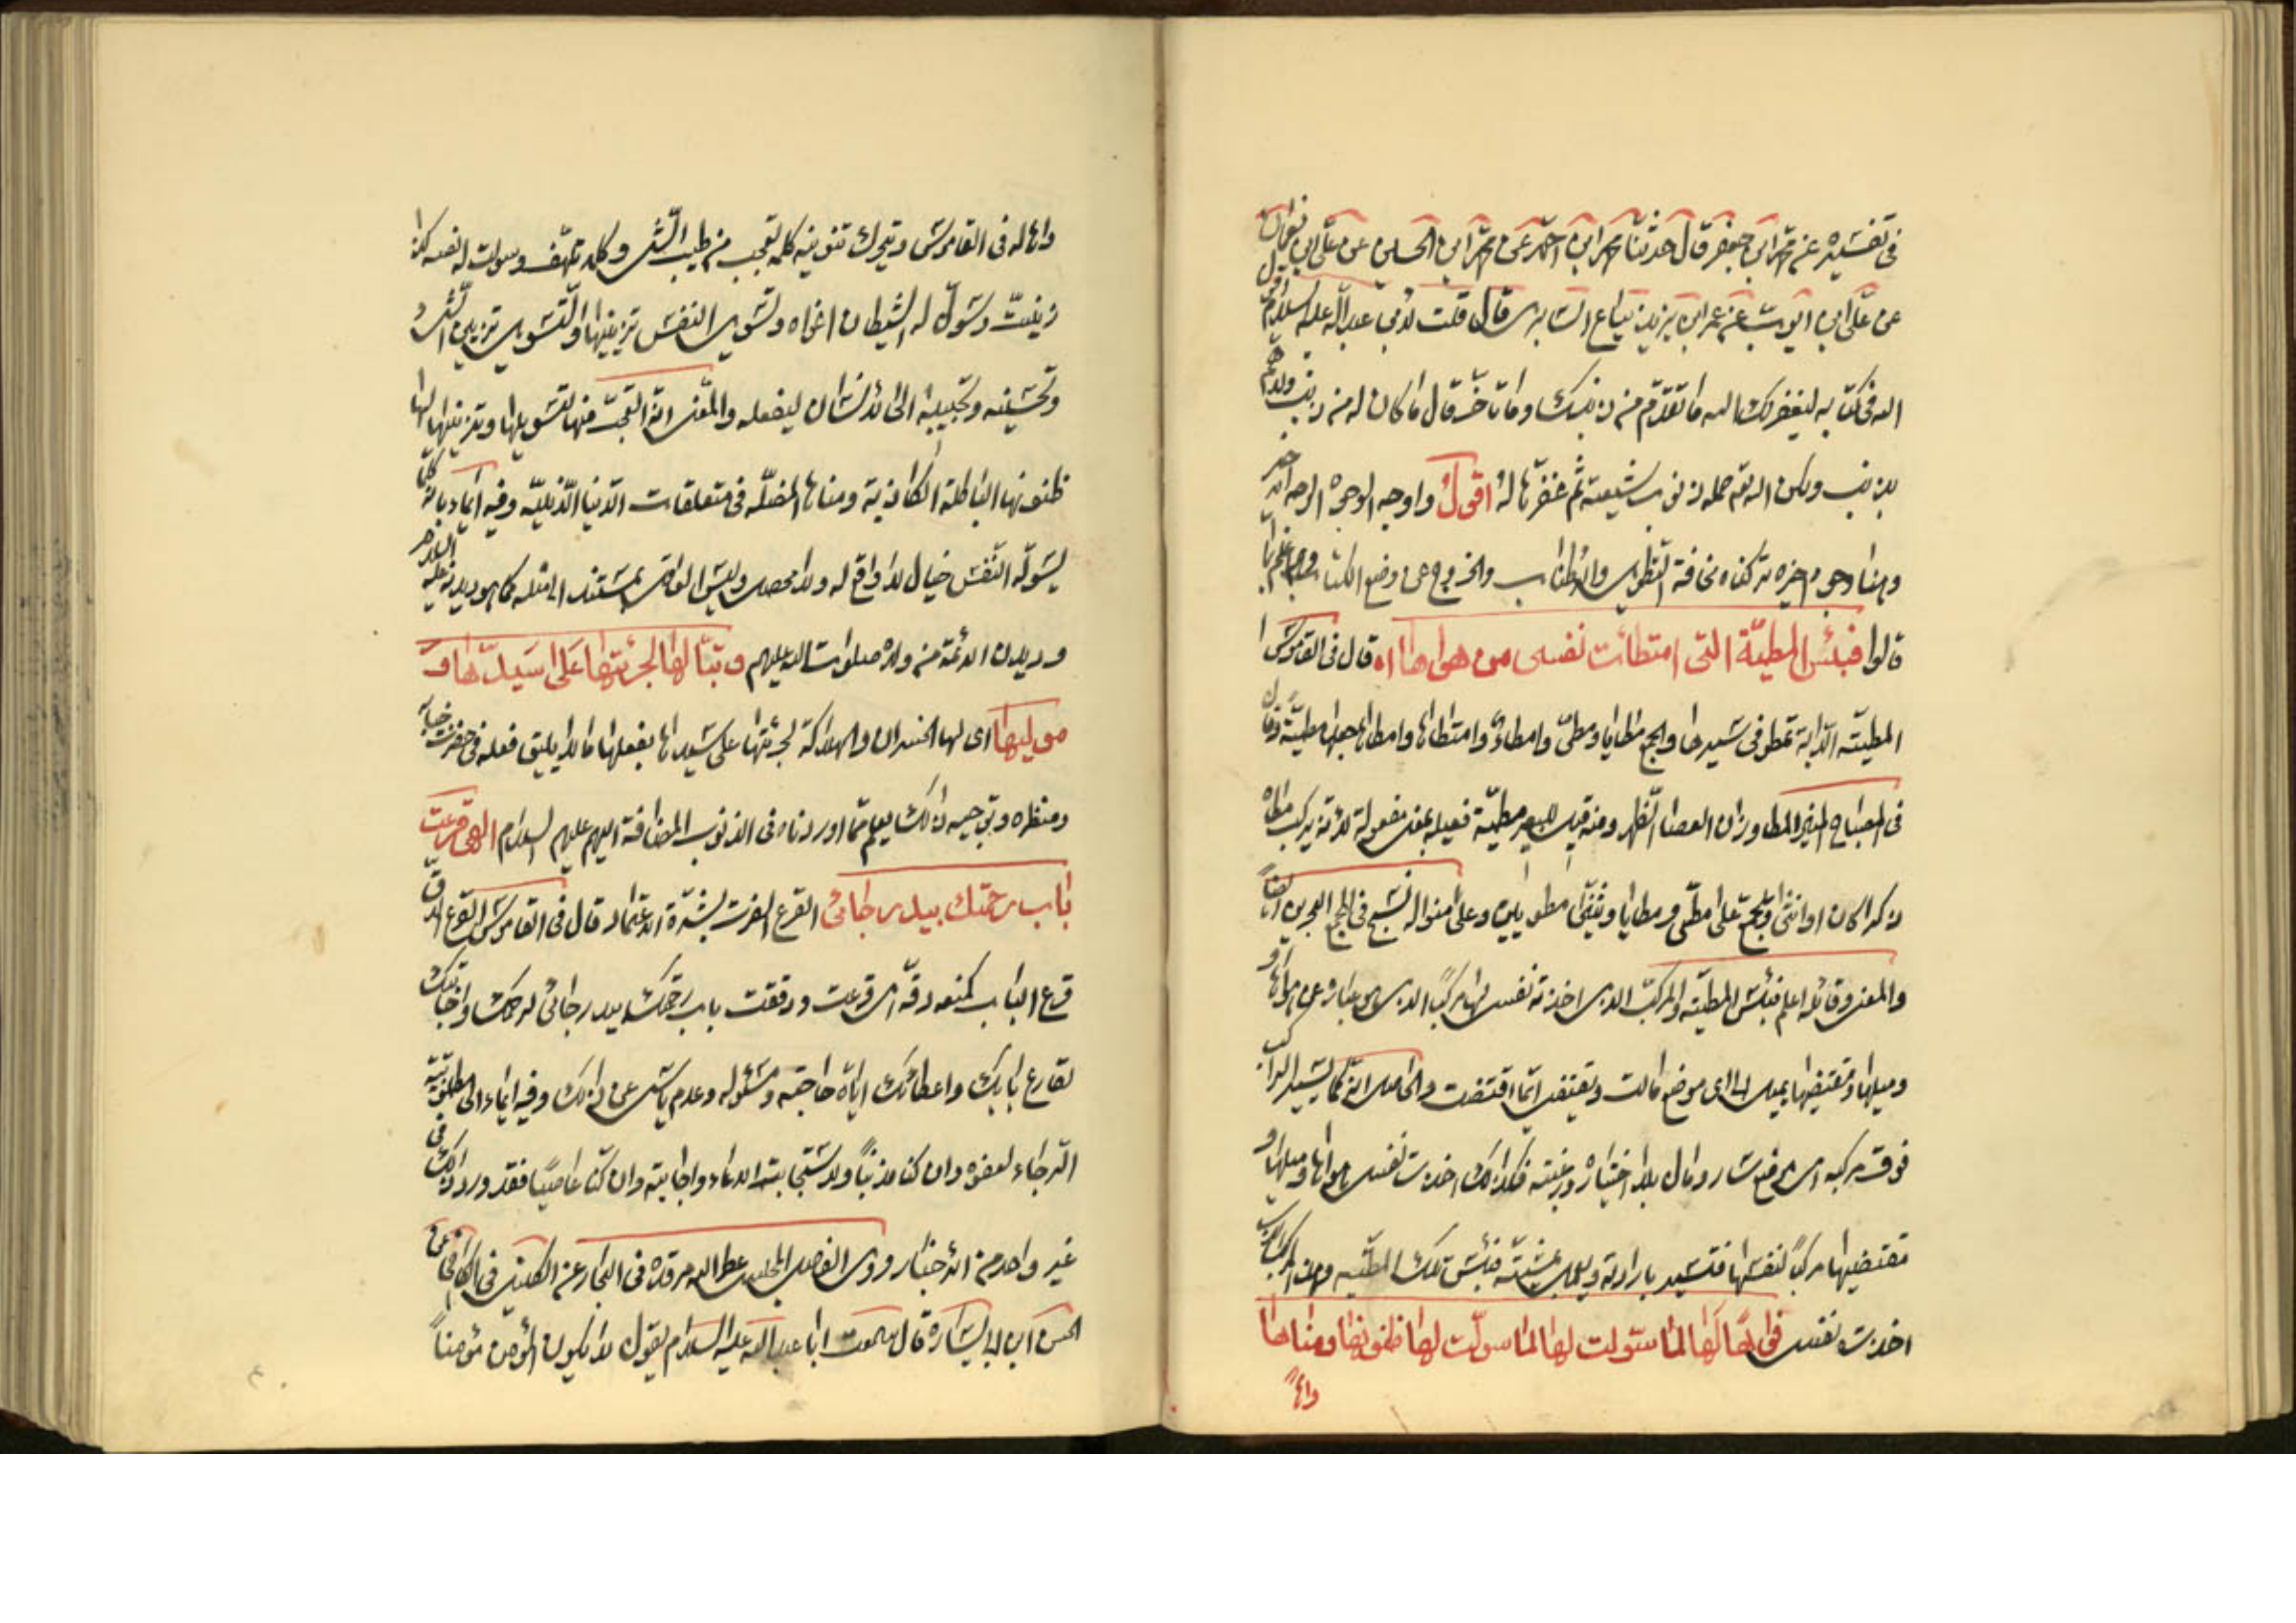 في تفسيره عن محمد ابن جعفر قال حدثنا محمد ابن احمد عن محمد ابن الحسين عن علي ابن نعمان
عن علي ابن ايوب عن عمر ابن يزيد بياع السابري قال قلت لأبي عبد الله عليه السلام قول
الله في كتابه ليغفر لك الله ما تقدم من ذنبك وما تأخر قال ما كان له من ذنب ولا هم
بذنب ولكن الله حمله ذنوب شيعته ثم غفرها له اقول واوجه الوجوه الوجه الاخير
وهنا وجوه اخيرة تركناه مخافة التطويل والأطناب والخروج عن وضع الكتاب
قالوا فبئس المطية التي امتطأت نفسي من هواها اه قال في القاموس
المطية الدابة تمطو في سيرها والجمع مطايا ومطي وامطاء وامتطاها وامطاها جعلها مطية وقال
في المصباح المنير المطا وزان العصا الظهر ومنه قيل للبعير مطية فعيلة بمعنى مفعولة لأنه يركب مطاه
ذكرا كان او انثى ويجمع على مطي ومطايا ويثنى مطويين وعلى منواله نسج في المجمع البحرين ايضا
والمعنى وقائله اعلم فبئس المطية والمركب الذي اخذته نفسي لها مركبا الذي هي عبارة عن هواها و
وميلها ومقتضيها يميل الى اي موضع مالت ويقتضي انما اقتضت والحاصل انه كما يسير الراكب
فوق مركبه اي موضع سار ومال بلا اختياره ورغبته فكذلك اخذت نفسي هواها وميلها و
مقتضيها مركبا لنفسها فتسير بارادته ويميل بمشيته فبئس تلك المطية وهذا المركب الذي
اخذت نفسي فواها لها لما سولت لها ظنونها ومناها
واها
واها له في القاموس ويترك تنوينه كلمة تعجب من طيب الشئ وكلمة تلهف وسولت له نفسه كذا
زينت وسول له الشيطان اغواه وتسويل النفس تزيينها والتسويل تزيين الشئ و
وتحسينه وتحبيبه الى الأنسان ليفعله والمعنى انه التعجب منها لتسويلها وتزيينها لها
ظنونها الباطلة الكاذبة ومناها المضلة في متعلقات الدنيا الدنية وفيه ايماء بانه كلما
يسوله النفس خيال لا واقع له ولا محصل وليس الواقع بمستند الى مثله كما هو ديدنه عليه السلام
وديدن الأئمة من ولده صلوات الله عليهم وتبا لها لجرئتها على سيدها و
موليها اي لها الخسران والهلاكة لجرئتها على سيدها بفعلها ما لا يليق فعله في حضرت جنابه
ومنظره وتوجيه ذلك يعلم مما اوردناه في الذنوب المضافة اليهم عليهم السلام الهي قرعت
باب رحمتك بيد رجائي القرع الضرب بشدة الاعتماد قال في القاموس القرع الدق
قرع الباب كمنعه دقه اي قرعت ودققت باب رحمتك بيد رجائي لرحمتك واجابتك
لقارع بابك واعطائك اياه حاجته ومسئوله وعدم يأس عن ذلك وفيه ايماء الى مطلوبية
الرجاء لعفوه وان كنا مذنبا ولاستجابته الدعاء واجابته وان كنا عاصيا فقد ورد ذلك في
غير واحد من الأخبار روى الفاضل المجلسي عطر الله مرقده في البحار عن الكليني في الكافي عن
الحسن ابن ابي سارة قال سمعت ابا عبد الله عليه السلام يقول لا يكون المؤمن مؤمنا